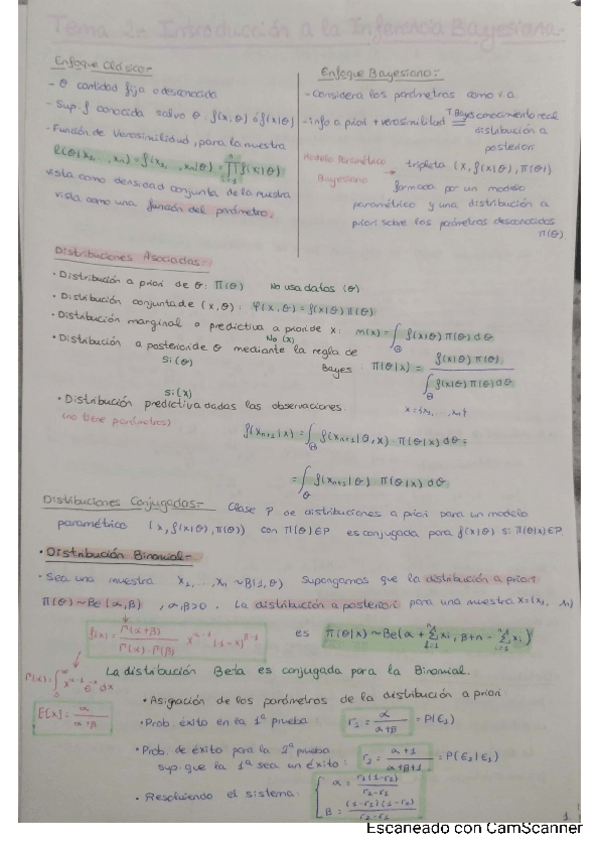 Tema 2:- Introducción a la Inferencia Bayesiana.-
Enfoque Clásico:-
- θ cantidad fija o desconocida
- Sup. f conocida salvo θ. f(x;θ) ó f(x|θ)
- Función de Verosimilitud, para la muestra
l(θ|x₁, ..., xₙ) = f(x₁, ..., xₙ|θ) = ∏ᵢ₌₁ⁿ f(xᵢ|θ)
vista como densidad conjunta de la muestra
vista como una función del parámetro.
Enfoque Bayesiano:-
- Considera los parámetros como v.a
- info a priori + verosimilitud T.Bayes = conocimiento real
distribución a
posteriori
Modelo Paramétrico Bayesiano → tripleta (X, f(x|θ), Π(θ))
formada por un modelo
paramétrico y una distribución a
priori sobre los parámetros desconocidos
Π(θ).
Distribuciones Asociadas:-
· Distribución a priori de θ: Π(θ) No usa datos (θ)
· Distribución conjunta de (x,θ): φ(x,θ) = f(x|θ) Π(θ)
· Distribución marginal o predictiva a priori de x: m(x) = ∫_Θ f(x|θ) Π(θ) dθ
No (x)
· Distribución a posteriori de θ mediante la regla de
Si (θ)
Bayes: Π(θ|x) = f(x|θ) Π(θ) / ∫_Θ f(x|θ) Π(θ) dθ
Si (x)
· Distribución predictiva dadas las observaciones x = {x₁, ..., xₙ}
(no tiene parámetros)
f(xₙ₊₁|x) = ∫_Θ f(xₙ₊₁|θ,x) · Π(θ|x) dθ =
= ∫_Θ f(xₙ₊₁|θ) · Π(θ|x) dθ
Distribuciones Conjugadas:- Clase P de distribuciones a priori para un modelo
paramétrico (x, f(x|θ), Π(θ)) con Π(θ)∈P es conjugada para f(x|θ) si Π(θ|x)∈P.
· Distribución Binomial:-
· Sea una muestra x₁, ..., xₙ ~ B(1,θ) Supongamos que la distribución a priori
Π(θ) ~ Be(α,β) , α,β>0. La distribución a posteriori para una muestra x=(x₁, xₙ)
f(x) = Γ(α+β) / Γ(α)·Γ(β) x^(α-1) (1-x)^(β-1)
es Π(θ|x) ~ Be(α + ∑ᵢ₌₁ⁿ xᵢ, β+n - ∑ᵢ₌₁ⁿ xᵢ)
Γ(α) = ∫₀^∞ x^(α-1) e^(-x) dx
La distribución Beta es conjugada para la Binomial.
E[X] = α / (α+β)
· Asignación de los parámetros de la distribución a priori
· Prob. éxito en la 1ª prueba: r₁ = α / (α+β) = P(E₁)
· Prob. de éxito para la 2ª prueba
sup. que la 1ª sea un éxito: r₂ = (α+1) / (α+β+1) = P(E₂|E₁)
· Resolviendo el sistema: { α = r₁(1-r₂) / (r₂-r₁)
β = (1-r₁)(1-r₂) / (r₂-r₁)
1
Escaneado con CamScanner